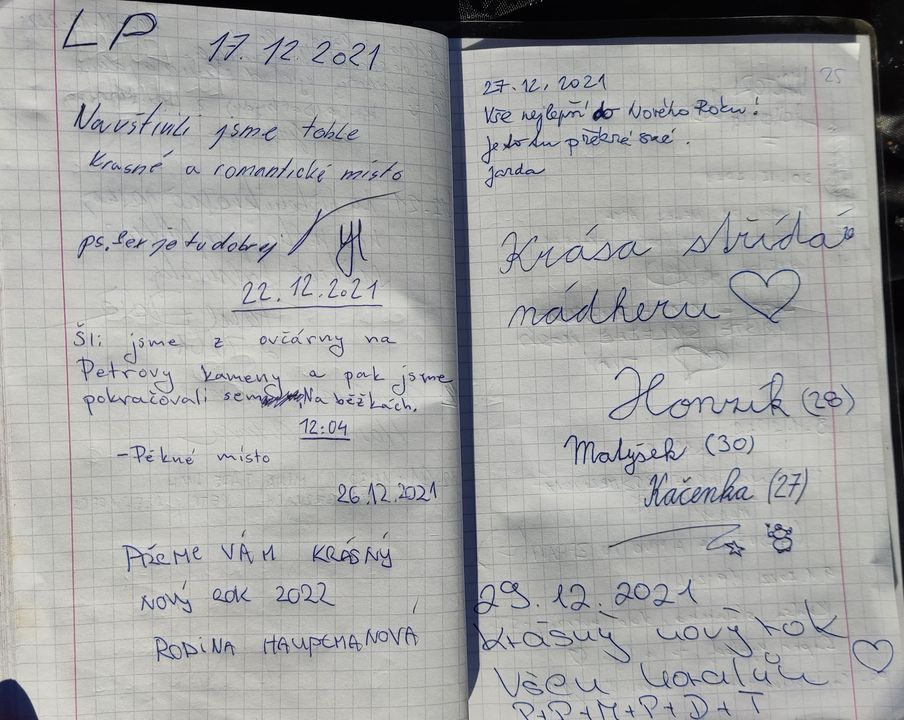 LP 17.12.2021
Navštívili jsme tohle
krásné a romantické místo
ps. ser je tu dobrej
22.12.2021
Šli jsme z ovčárny na
Petrovy kameny a pak jsme
pokračovali sem Na běžkách.
12:04
-Pěkné místo
26.12.2021
PŘEJEME VÁM KRÁSNÝ
NOVÝ ROK 2022
RODINA
25
27.12.2021
Vše nejlepší do Nového Roku!
je to tu překrásné.
Jarda
Krása střídá
nádheru
Honzík (28)
Matýsek (30)
Kačenka (27)
29.12.2021
Krásný nový rok
Všem
P+P+M+P+D+T